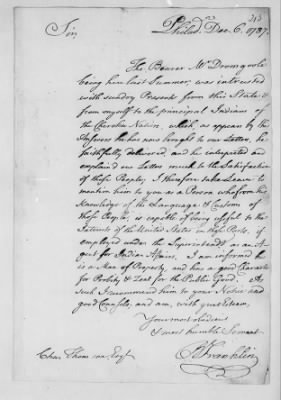 Philad.ª Dec. 6, 1787.
Sir,
The Bearer Mr Dromgoole
being here last Summer, was intrusted
with sundry Presents from this State &
from myself to the principal Indians of
the Cherokee Nation, which as appears by the
Answers he has now brought to our Letters, he
faithfully delivered, and he interpreted and
explain'd our Letters much to the Satisfaction
of those People; I therefore take Leave to
mention him to you as a Person who from his
Knowledge of the Language & Customs of
those People, is capable of being useful to the
Interests of the United States in those Parts, if
employed under the Superintendt as an A-
gent for Indian Affairs. I am informed he
is a Man of Property, and has a good Character
for Probity & Zeal for the Public Good. As
such I recommend him to your Notice and
good Counsels; and am, with great Esteem,
Your most obedient
& most humble Servant
B Franklin
Chas Thomson Esqr